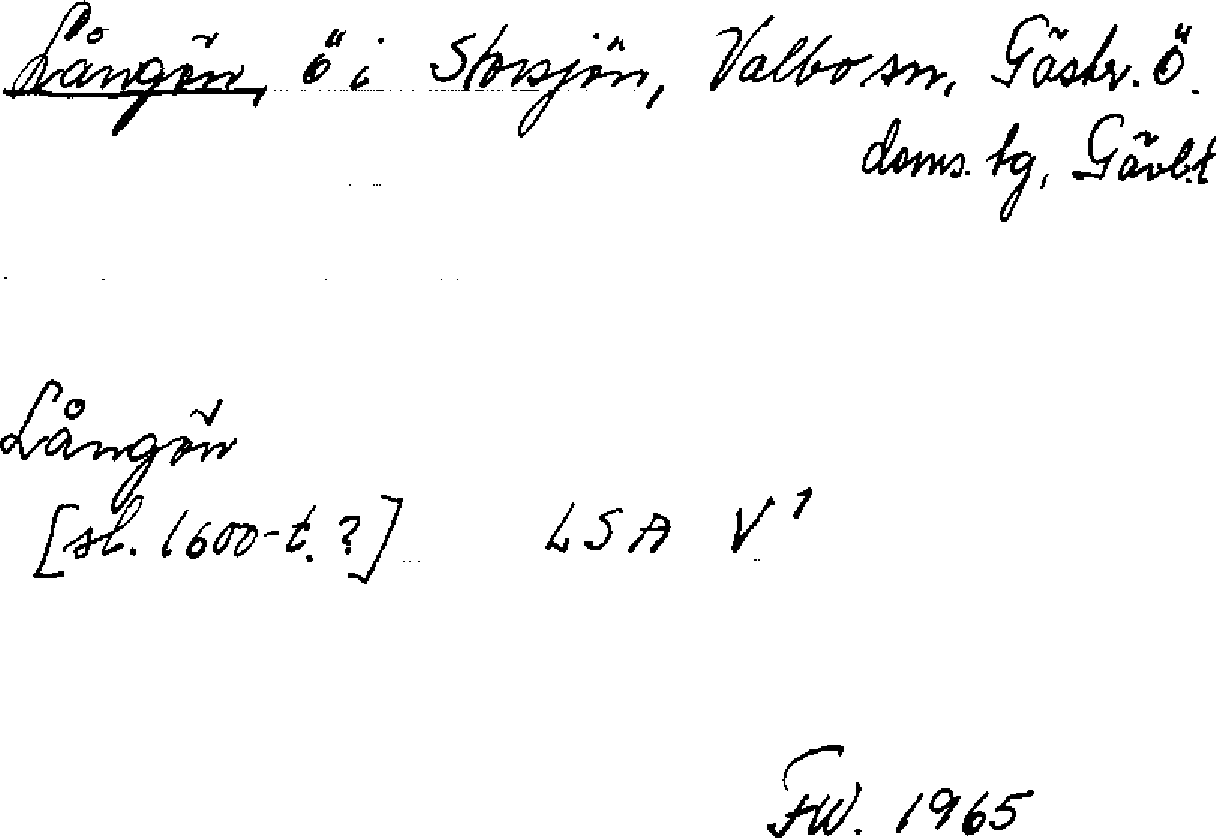 Långön, ö i Storsjön, Valbo sn, Gästr. Ö.
doms. tg, Gävl.t
Långön
[sl. 1600-t.?] LSA V¹
FW. 1965